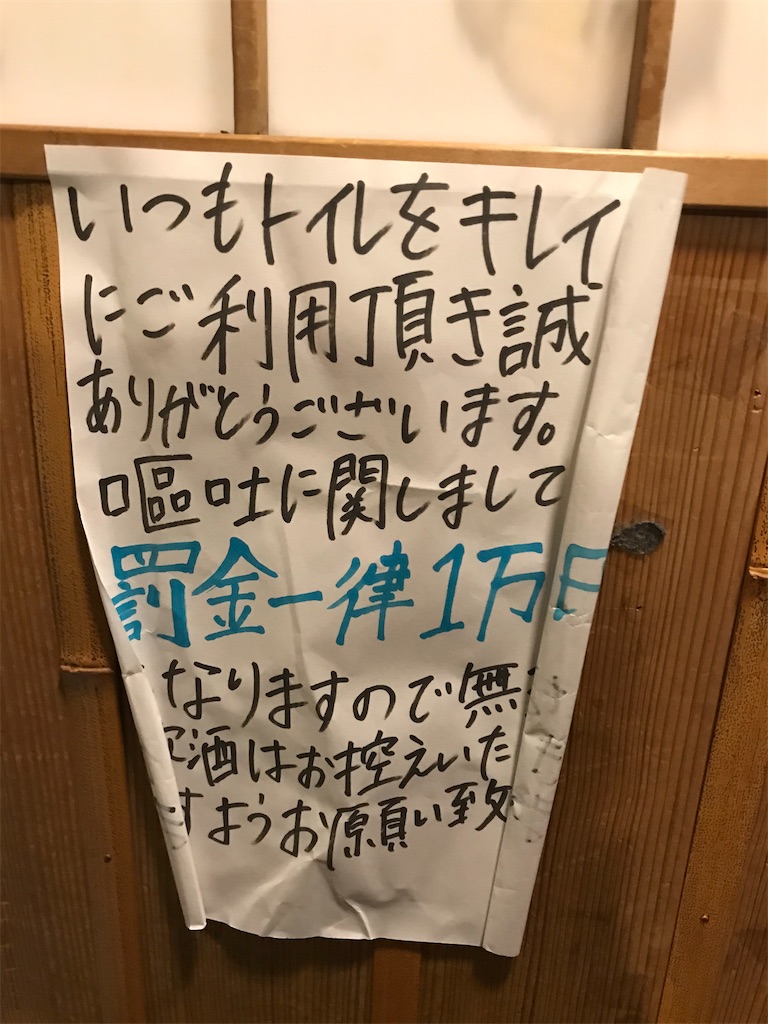 いつもトイレをキレイ
にご利用頂き誠
ありがとうございます。
嘔吐に関しまして
罰金一律1万
なりますので無
酒はお控えいた
すようお願い致